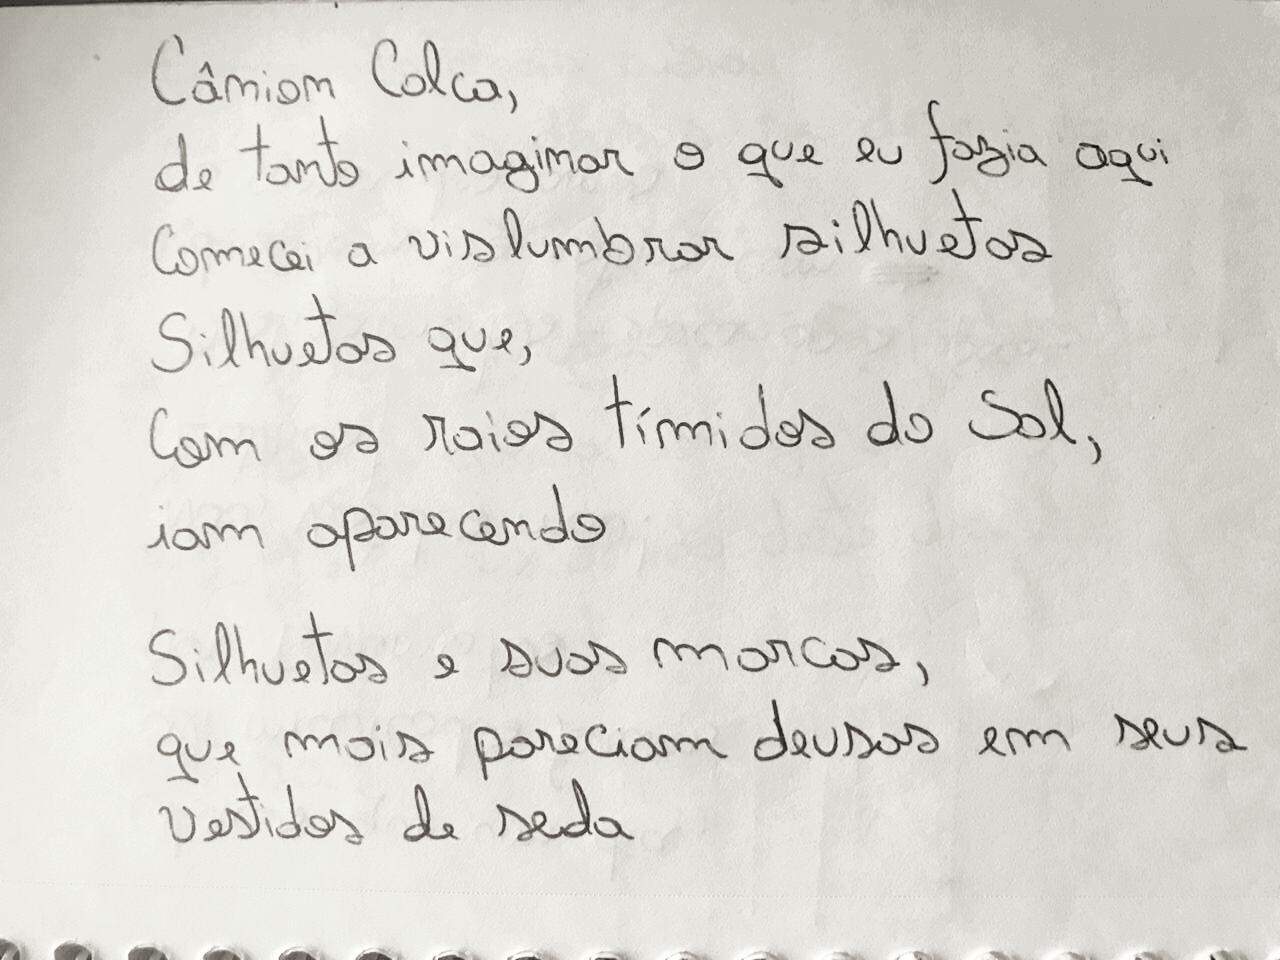 Cânion Colca,
de tanto imaginar o que eu fazia aqui
Comecei a vislumbrar silhuetas
Silhuetas que,
Com os raios tímidos do Sol,
iam aparecendo
Silhuetas e suas marcas,
que mais pareciam deusas em seus
vestidos de seda